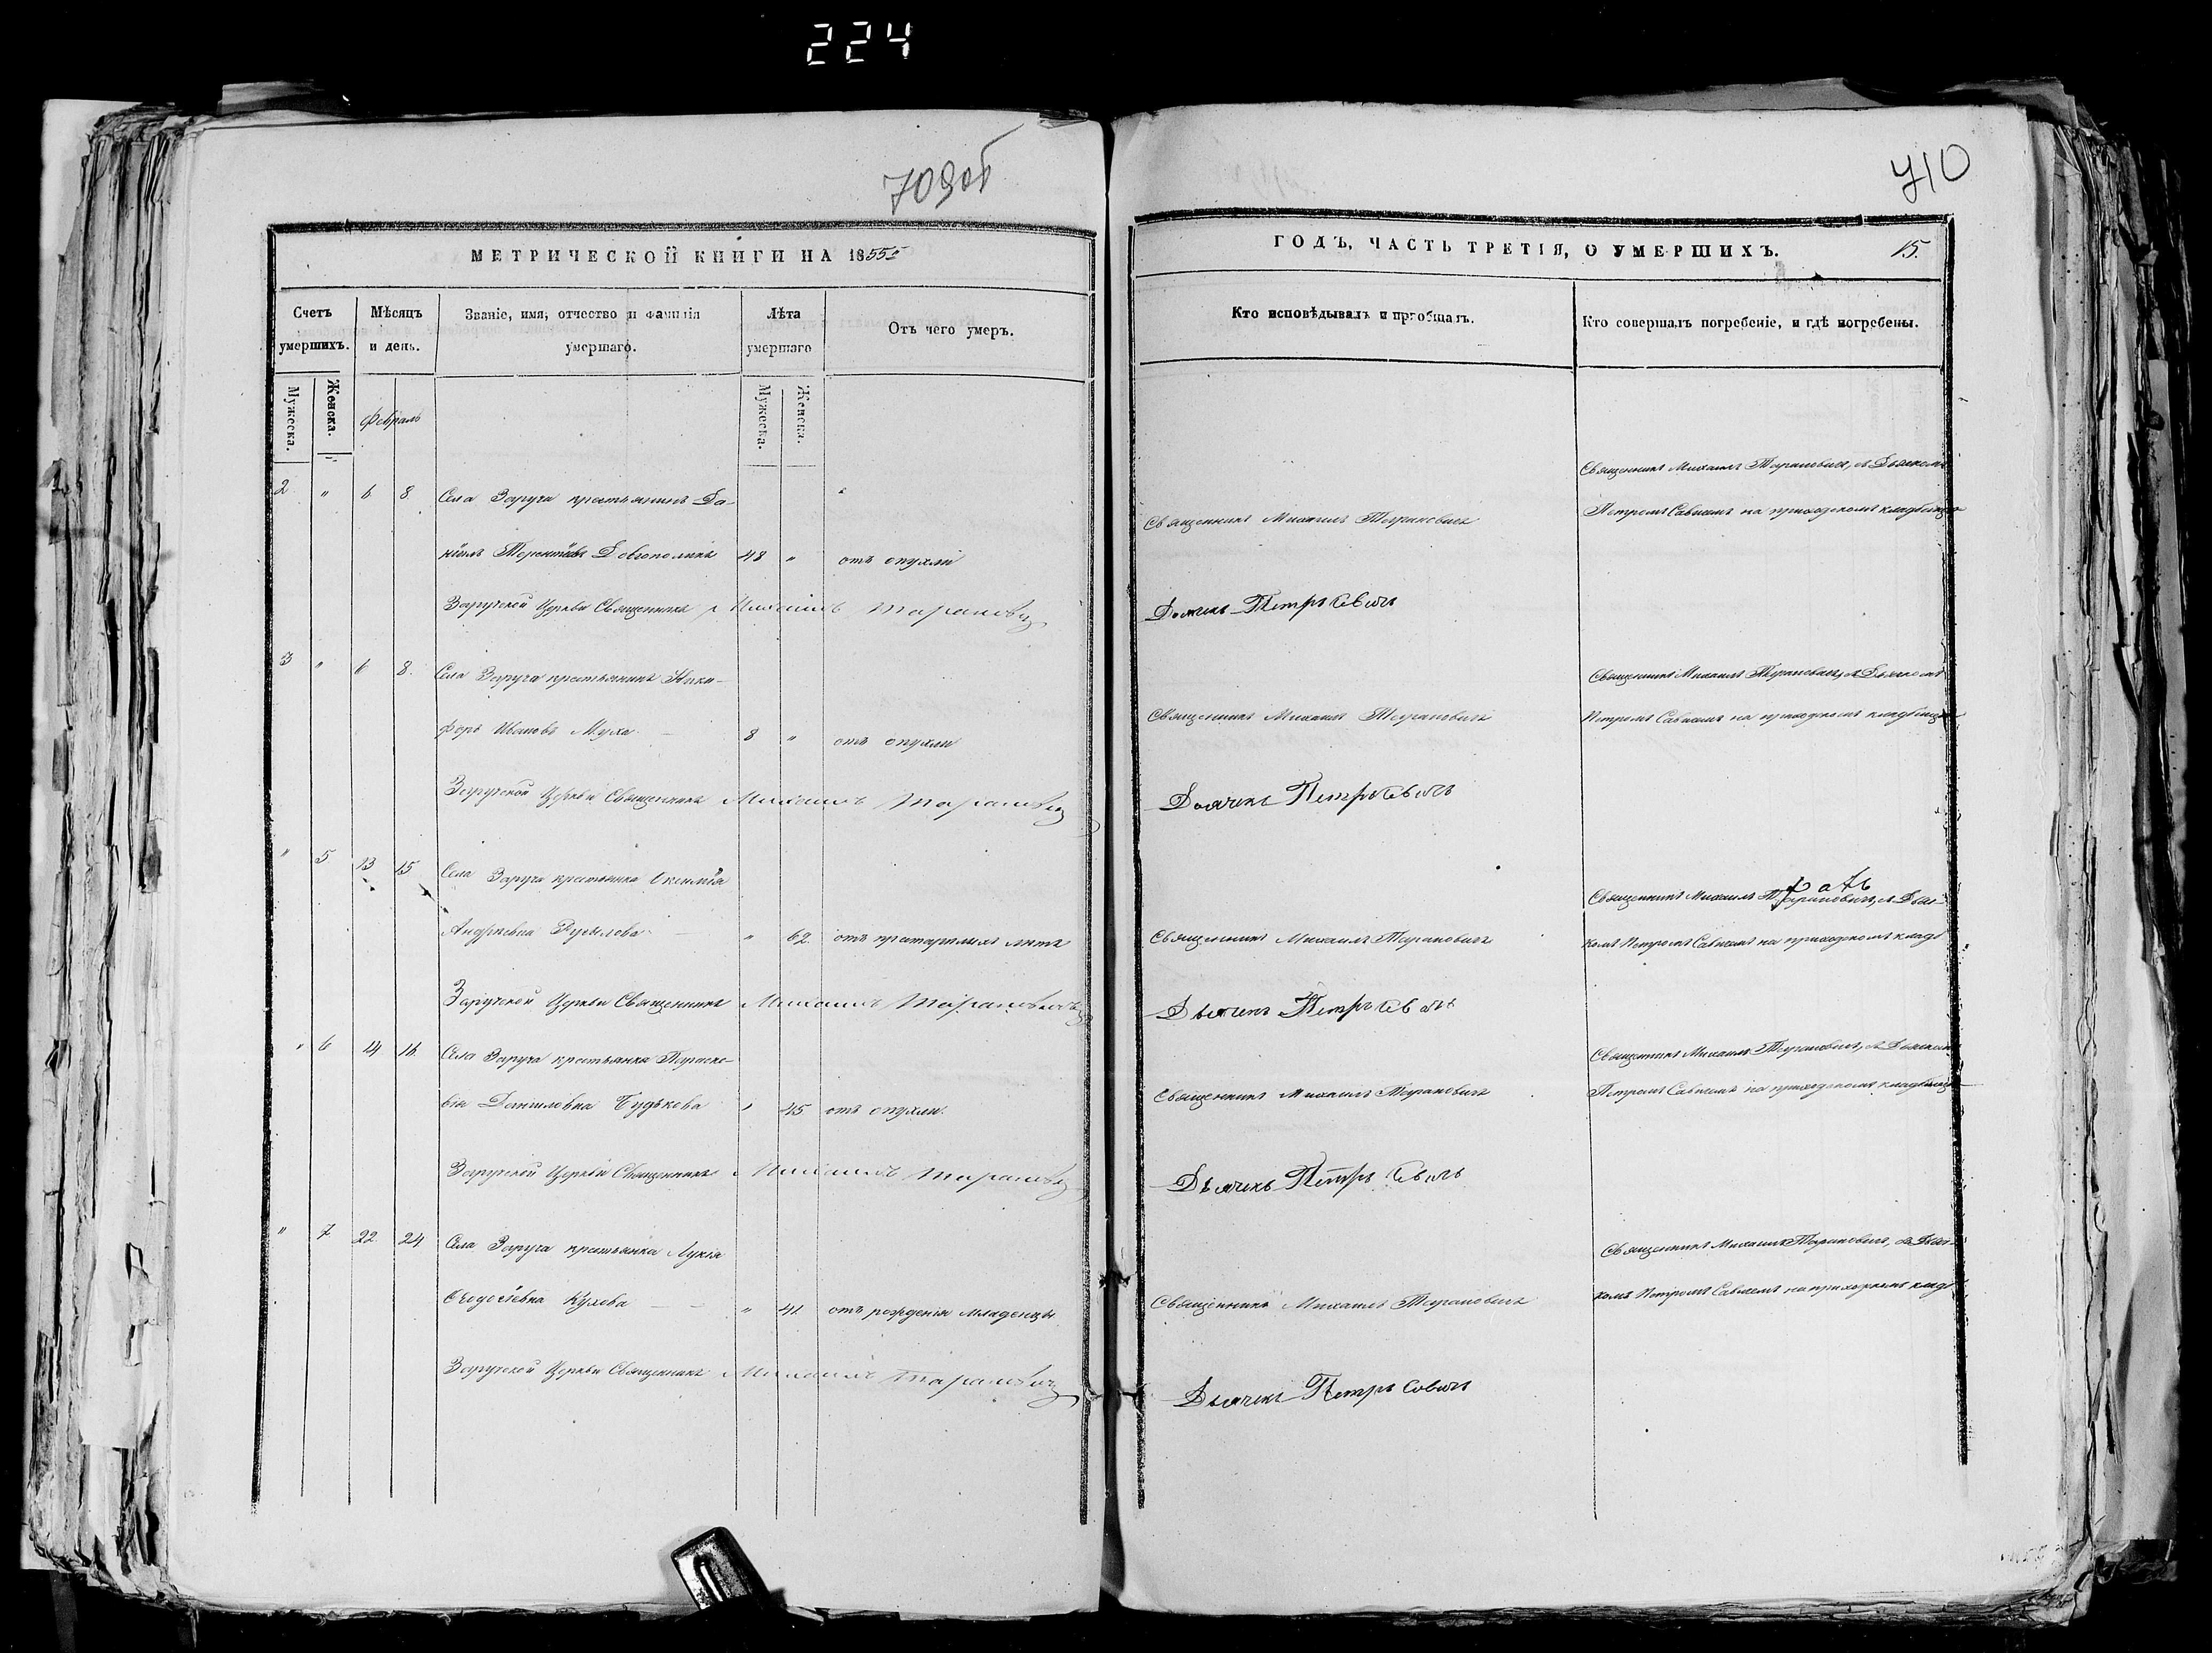 224
709об
МЕТРИЧЕСКОЙ КНИГИ НА 1855й
Счетъ умершихъ.
Мѣсяцъ и день.
Званіе, имя, отчество и фамилія умершаго.
Лѣта умершаго
Отъ чего умеръ.
Мужеска.
Женска.
Февраль
Мужеска.
Женска.
2 " 6 8 Села Заруча крестьянинъ Да-
ніилъ Терентіевъ 48 " отъ опухли
Заручской Церкви Священникъ Михаилъ Тарановичъ
3 " 6 8. Села Заруча крестьянинъ Ники-
форъ Ивановъ Муха 8 " отъ опухли
Заручской Церкви Священникъ Михаилъ Тарановичъ
" 5 13 15 Села Заруча крестьянка
Андреевна " 62. отъ престарелыхъ летъ
Заручской Церкви Священникъ Михаилъ Тарановичъ
" 6 14 16. Села Заруча крестьянка Параске-
віа Даниловна Будькова " 45 отъ опухли.
Заручской Церкви Священникъ Михаилъ Тарановичъ
" 7 22 24 Села Заруча крестьянка Лукія
Кулова " 41. отъ рожденія младенца
Заручской Церкви Священникъ Михаилъ Тарановичъ
710
ГОДЪ, ЧАСТЬ ТРЕТІЯ, О УМЕРШИХЪ.
15.
Кто исповѣдывалъ и пріобщалъ.
Кто совершалъ погребеніе, и гдѣ погребены.
Священникъ Михаилъ Тарановичъ, съ Дьячкомъ
Священникъ Михаилъ Тарановичъ
Петромъ Савичемъ на приходскомъ кладбищѣ
Дьячекъ Петръ Савичъ
Священникъ Михаилъ Тарановичъ, съ Дьячкомъ
Священникъ Михаилъ Тарановичъ
Петромъ Савичемъ на приходскомъ кладбищѣ
Дьячекъ Петръ Савичъ
Священникъ Михаилъ Тарановичъ, съ Дьяч-
Священникъ Михаилъ Тарановичъ
комъ Петромъ Савичемъ на приходскомъ кладб
Дьячекъ Петръ Савичъ
Священникъ Михаилъ Тарановичъ, съ Дьячкомъ
Священникъ Михаилъ Тарановичъ
Петромъ Савичемъ на приходскомъ кладбищѣ
Дьячекъ Петръ Савичъ
Священникъ Михаилъ Тарановичъ, съ Дьяч-
Священникъ Михаилъ Тарановичъ
комъ Петромъ Савичемъ на приходскомъ кладб
Дьячекъ Петръ Савичъ